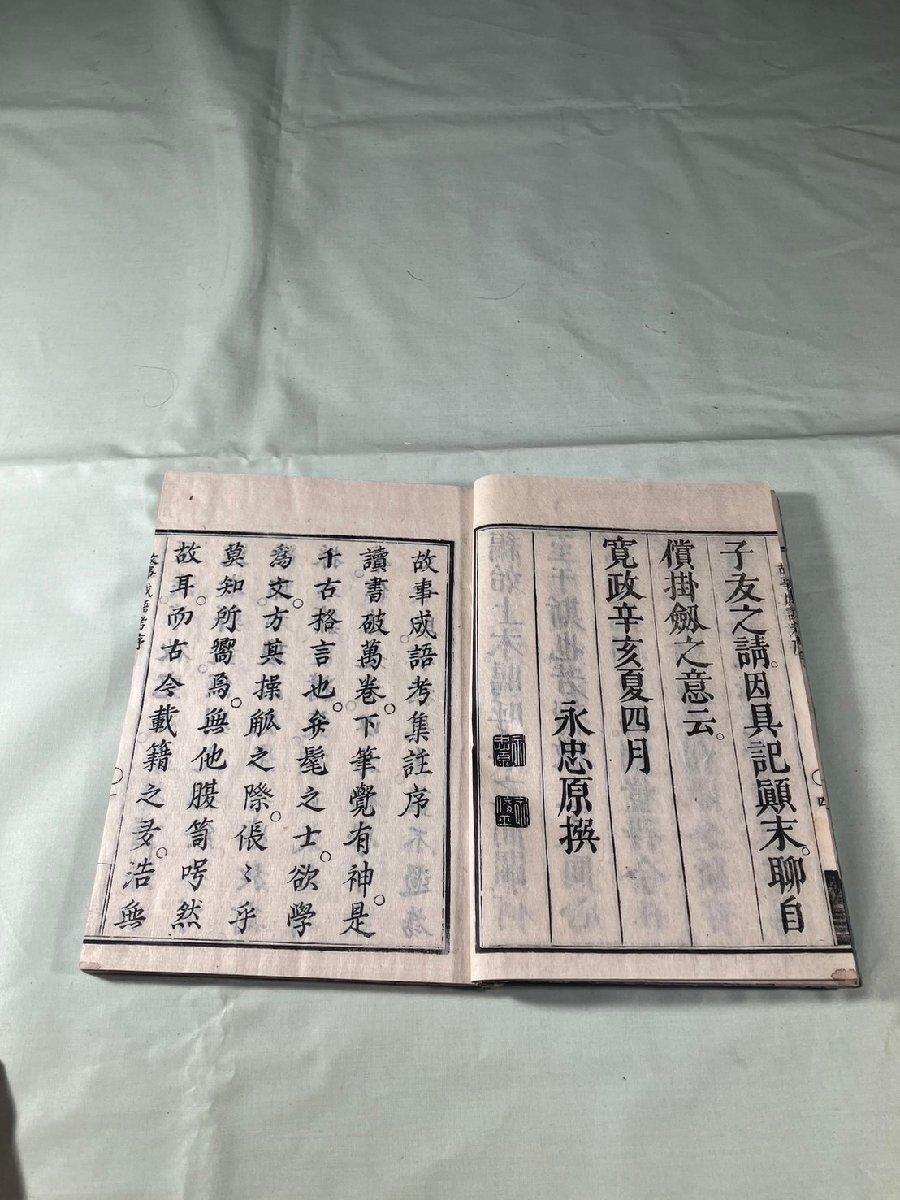 子友之請。因具記顚末。聊自
償掛劔之意云。
寛政辛亥夏四月
永忠原撰
四
故事成語考集註序
讀書破萬卷。下筆覺有神。是
千古格言也。弁髦之士。欲學
爲文。方其操觚之際。倀〻乎
莫知所嚮焉。無他。腹笥呺然
故耳。而古今載籍之多浩無
故事成語考序